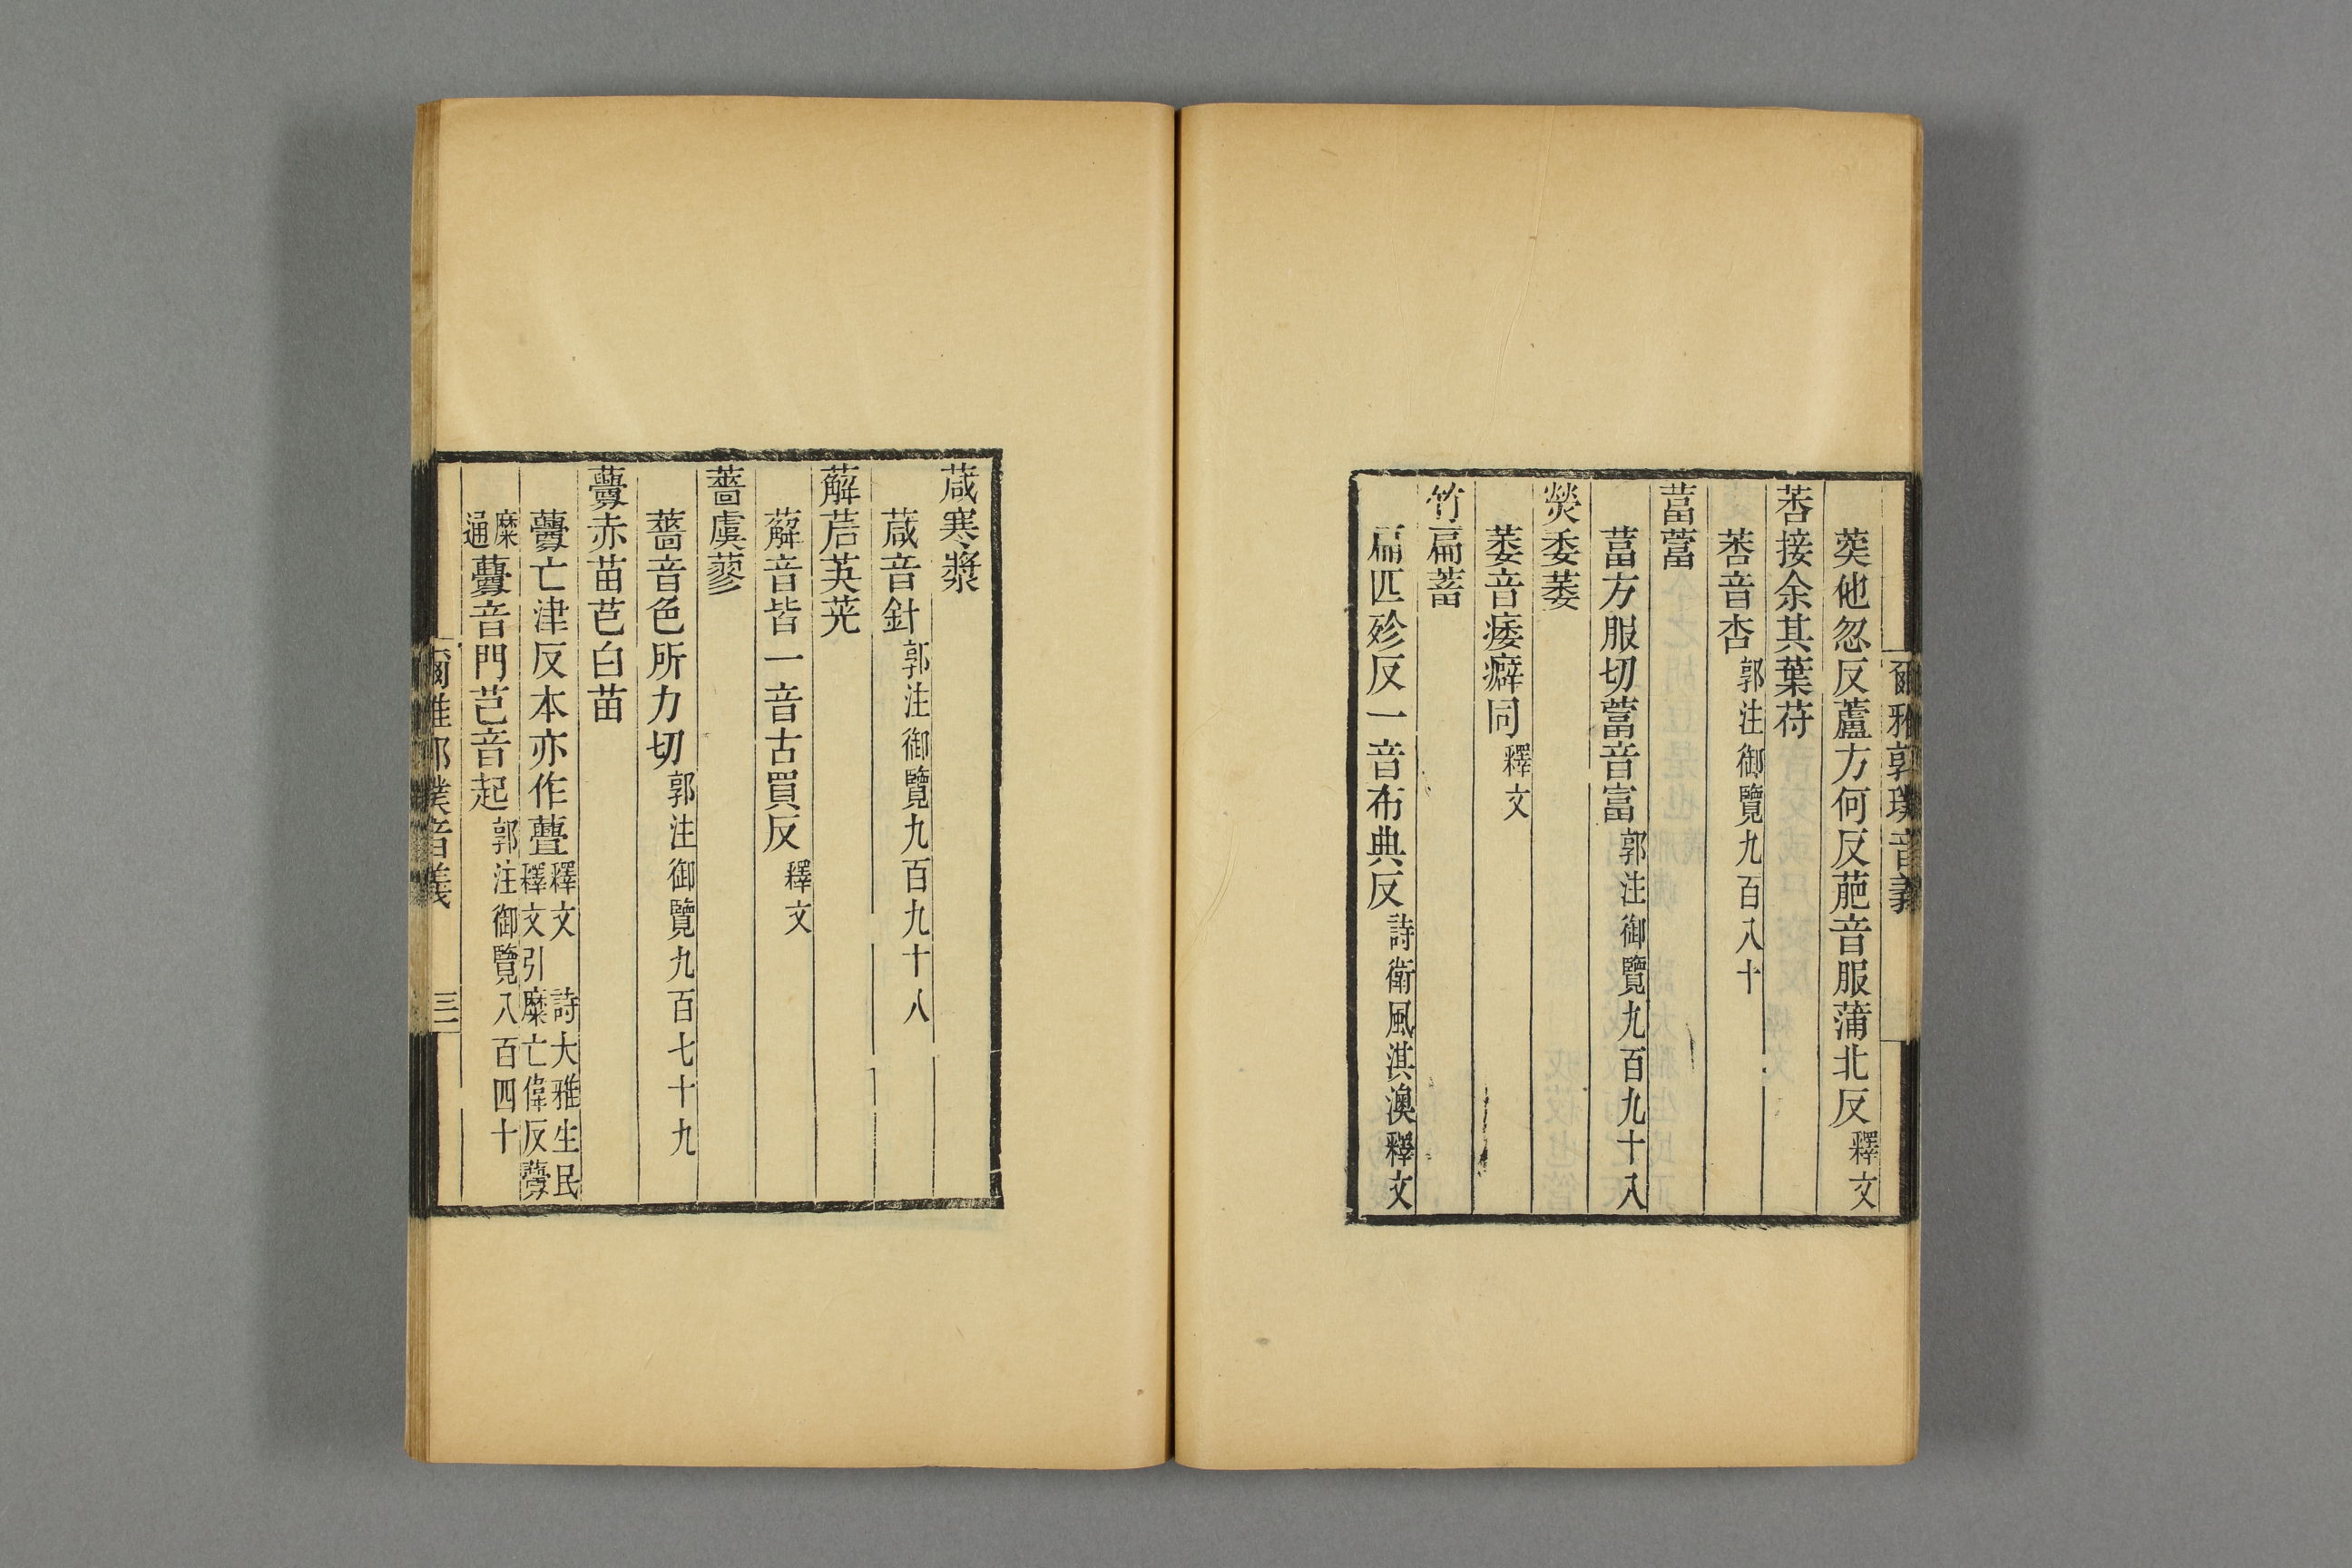 爾雅郭璞音義
葖他忽反蘆方何反萉音服蒲北反釋文
莕接余其葉苻
莕音杏郭注御覽九百八十
葍䔰
葍方服切䔰音富郭注御覽九百九十八
熒委萎
萎音痿癖同釋文
竹萹蓄
萹匹殄反一音布典反詩衛風淇澳釋文
葴寒漿
葴音針郭注御覽九百九十八
薢茩芵茪
薢音皆一音古買反釋文
薔虞蓼
薔音色所力切郭注御覽九百七十九
虋赤苗芑白苗
虋亡津反本亦作亹釋文　詩大雅生民
釋文引穈亡偉反虋
穈通虋音門芑音起郭注御覽八百四十
爾雅郭璞音義　三